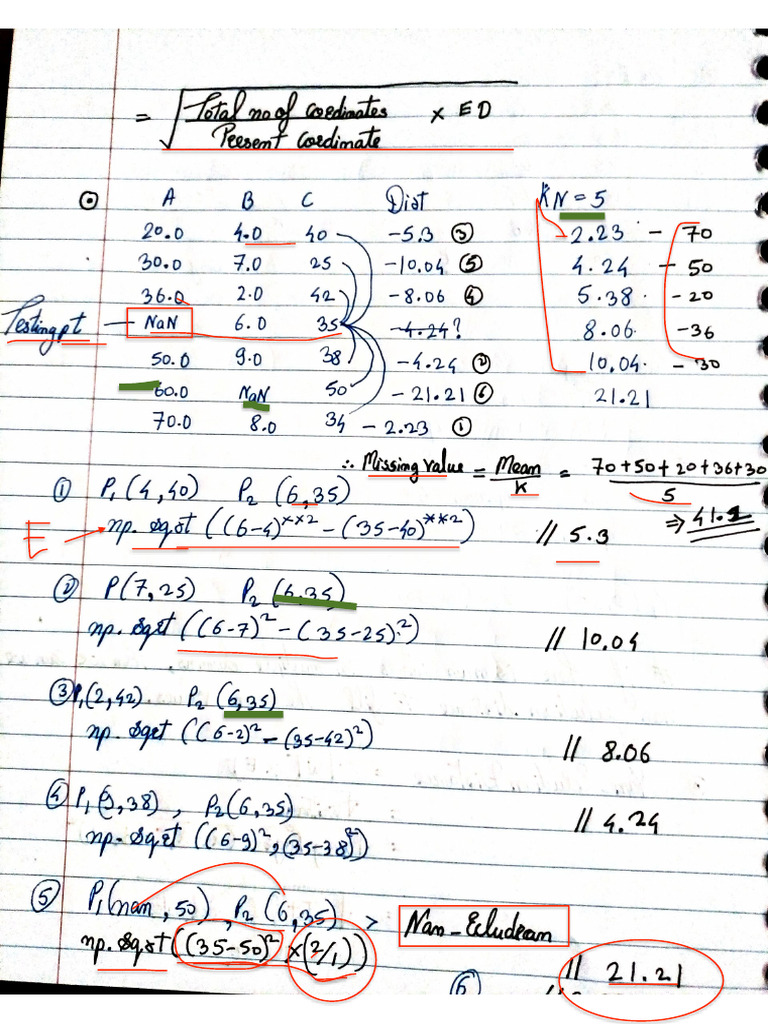 = √ Total no of coordinates / Present Coordinate × ED
A B C Dist KN = 5
20.0 4.0 40 -5.3 ③ 2.23 - 70
30.0 7.0 25 -10.04 ⑤ 4.24 - 50
36.0 2.0 42 -8.06 ④ 5.38 - 20
Testing pt. — NaN 6.0 35 -4.24? 8.06 -36
50.0 9.0 38 -4.24 ② 10.04 - 30
60.0 NaN 50 -21.21 ⑥ 21.21
70.0 8.0 34 -2.23 ①
∴ Missing value = Mean / K = 70+50+20+36+30 / 5
① P₁(4,40) P₂ (6,35) ⇒ 41.2
E → np.sqrt((6-4)**2 - (35-40)**2) // 5.3
② P(7,25) P₂ (6,35)
np.sqrt((6-7)² - (35-25)²) // 10.04
③ P₁(2,42). P₂ (6,35)
np.sqrt((6-2)² - (35-42)²) // 8.06
④ P₁(9,38), P₂(6,35)
np.sqrt((6-9)², (35-38)²) // 4.24
⑤ P₁(nan,50), P₂(6,35) > Nan-Ecludean
np.sqrt((35-50)² ×(2/1)) // 21.21
⑥